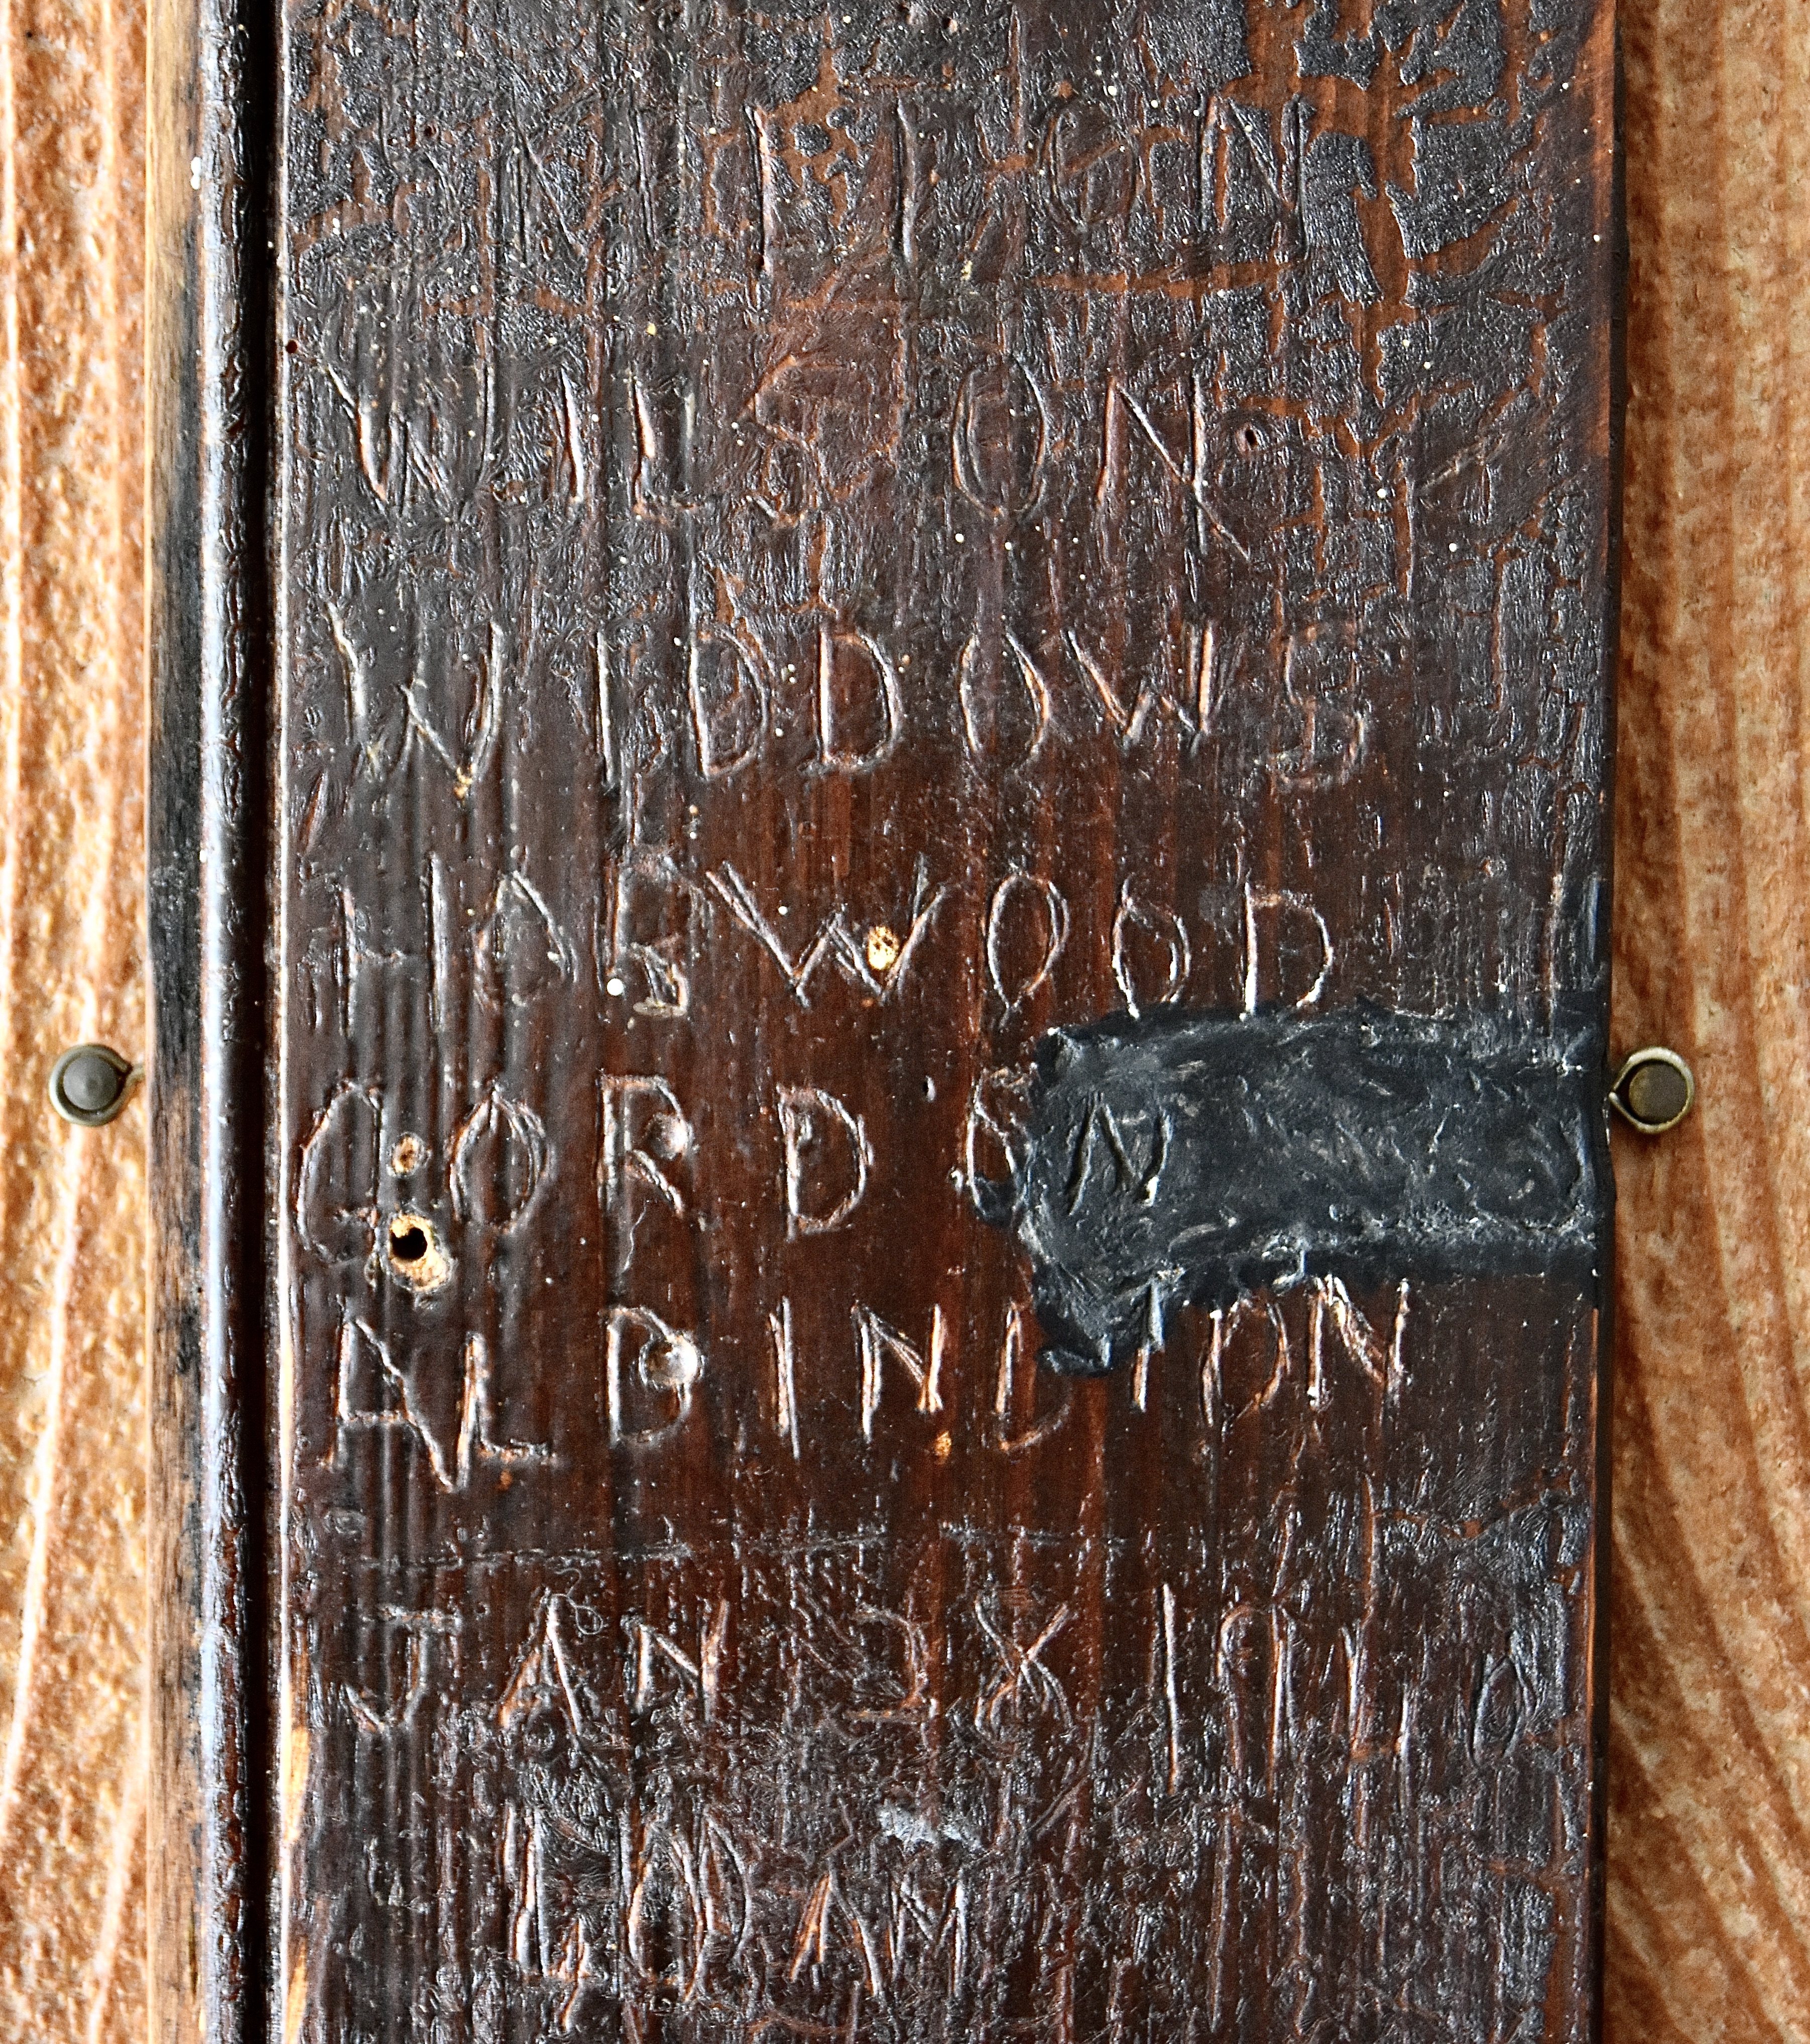 WILSON
WIDDOWS
HORWOOD
GORDON
ALDINDTON
JAN 1910
10 AM